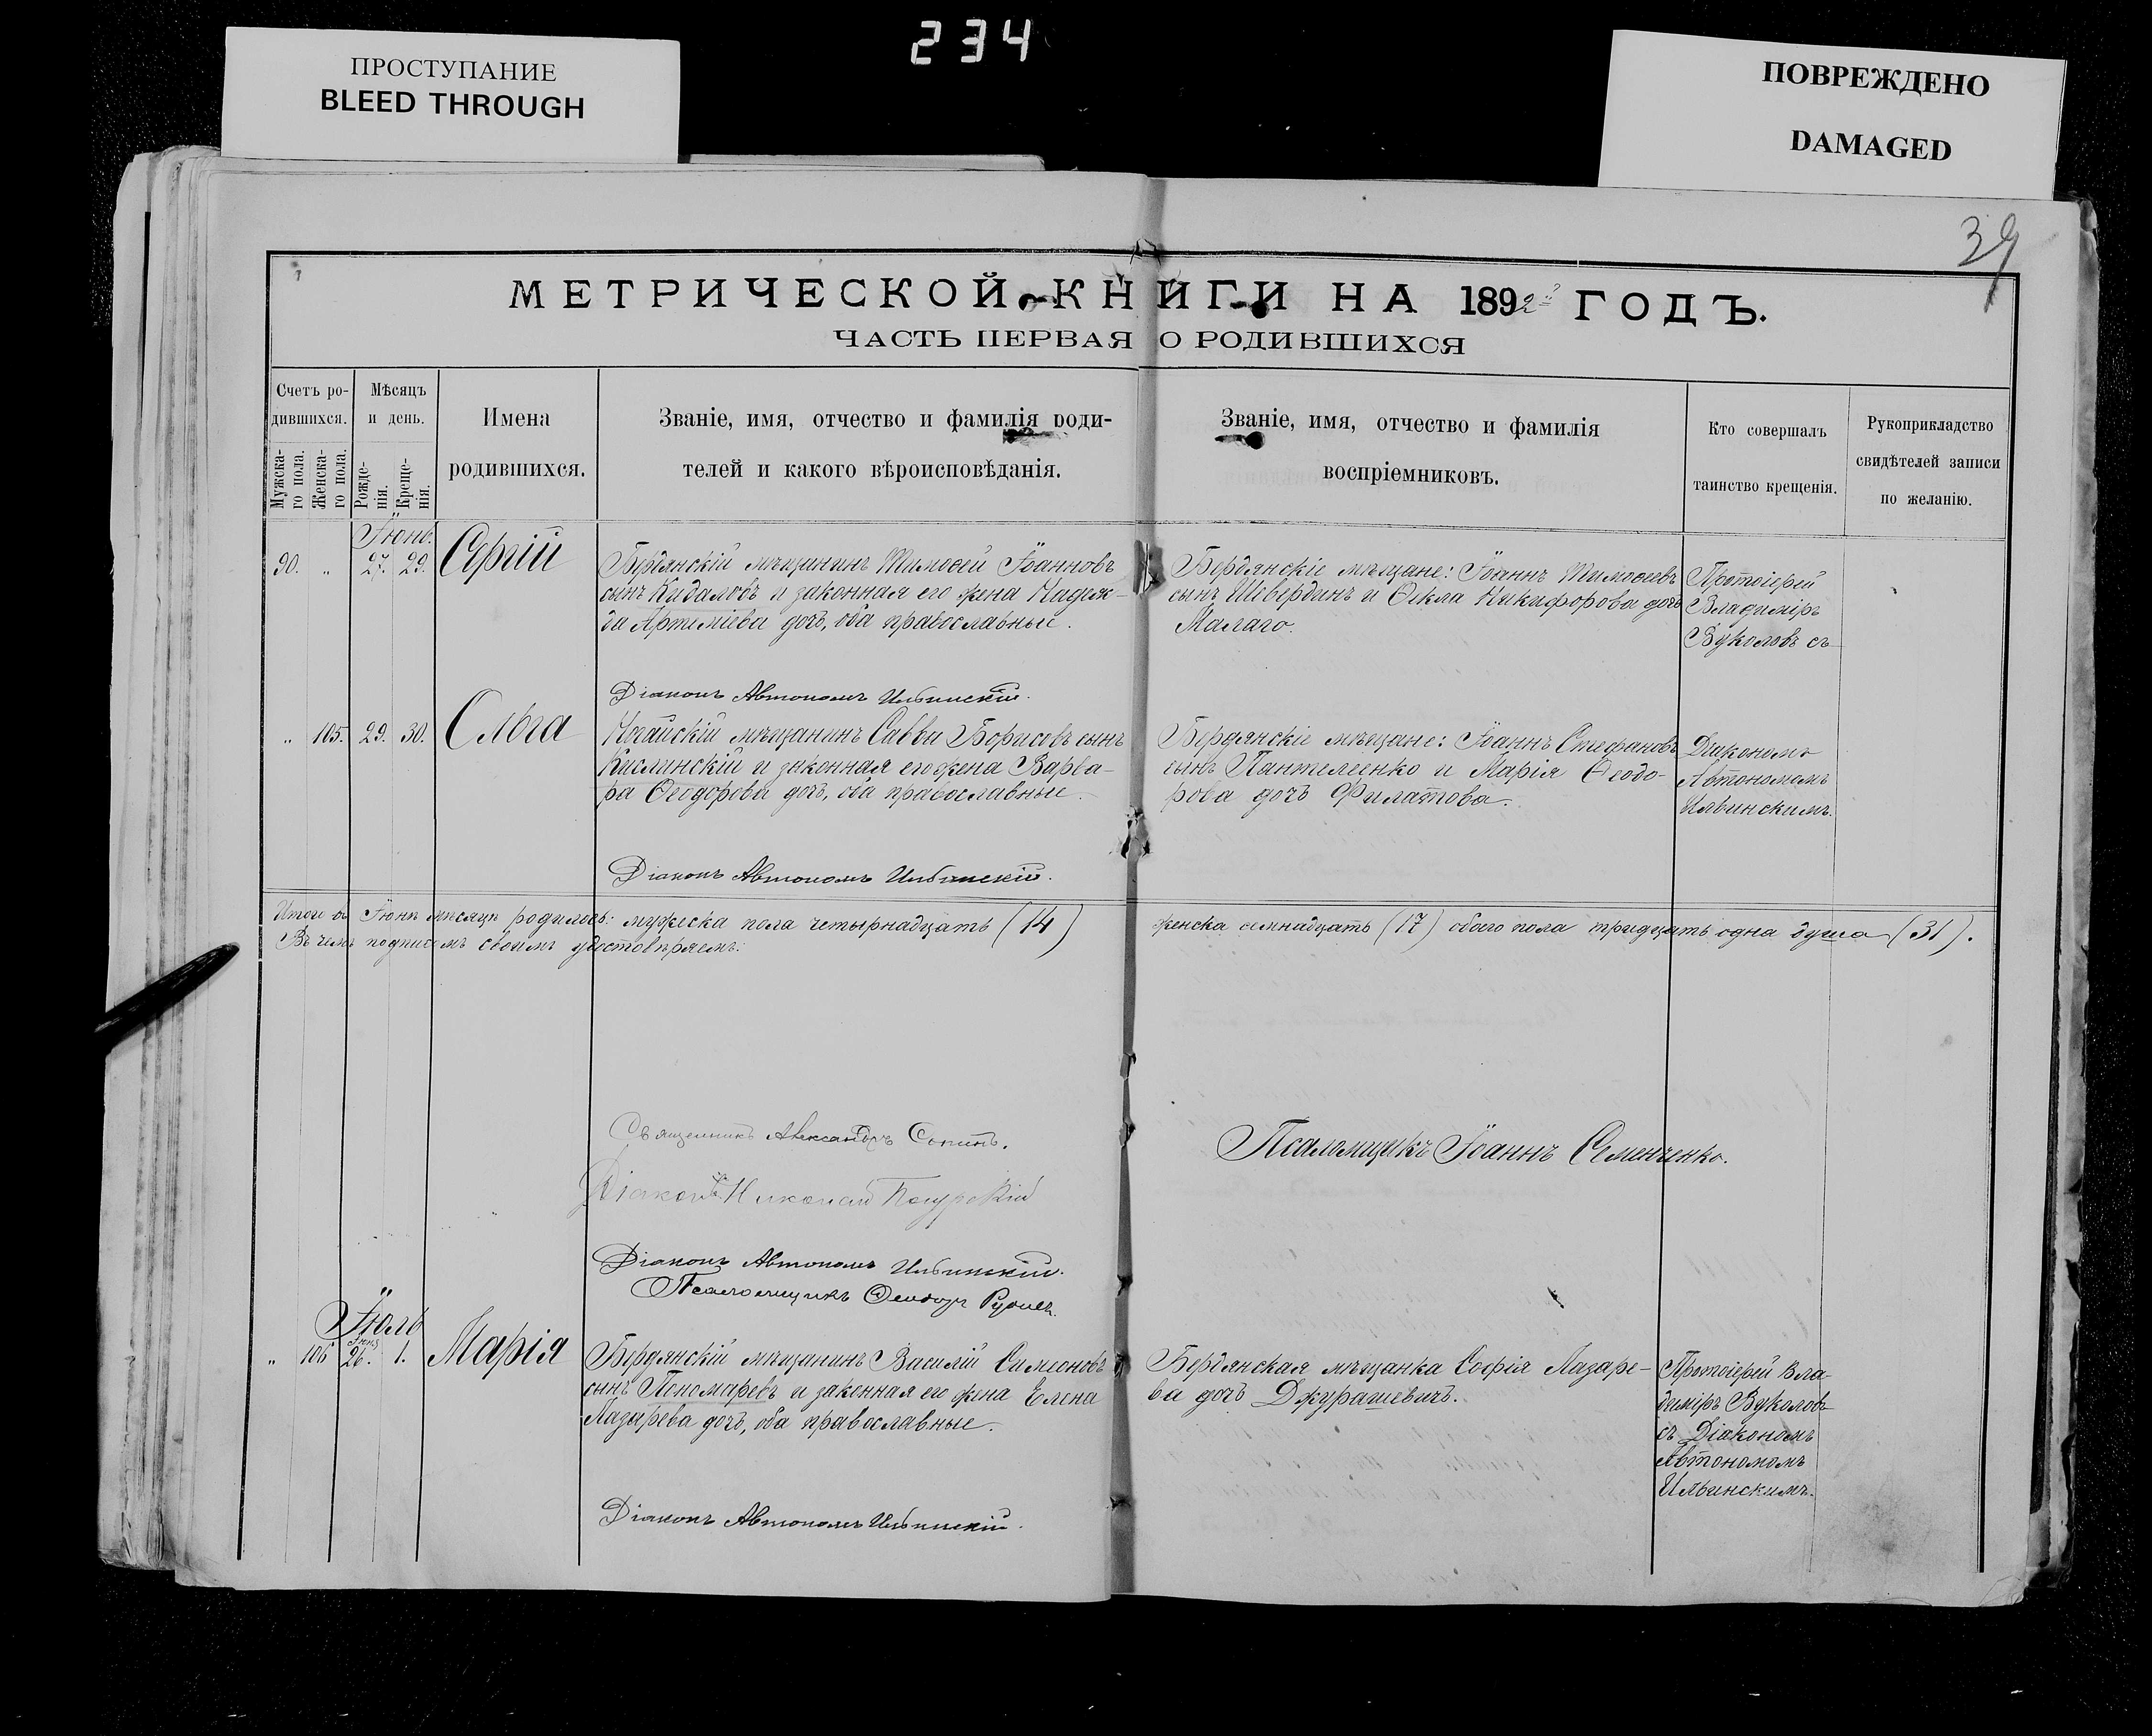 ПРОСТУПАНИЕ
BLEED THROUGH
234
ПОВРЕЖДЕНО
DAMAGED
39
МЕТРИЧЕСКОЙ КНИГИ НА 1892й ГОДЪ.
ЧАСТЬ ПЕРВАЯ О РОДИВШИХСЯ
Счетъ ро-
дившихся.
Мужска-
го пола.
Женска-
го пола.
Мѣсяцъ
и день.
Рожде-
нія.
Креще-
нія.
Имена
родившихся.
Званіе, имя, отчество и фамилія роди-
телей и какого вѣроисповѣданія.
Званіе, имя, отчество и фамилія
воспріемниковъ.
Кто совершалъ
таинство крещенія.
Рукоприкладство
свидѣтелей записи
по желанію.
Іюнь.
90. „ 27. 29. Сергій
Бердянскій мѣщанинъ Тимоѳей Іоанновъ
сынъ Кидаловъ и законная его жена Надеж-
да Артеміева дочь, оба православные.
Бердянскіе мѣщане: Іоаннъ Тимоѳеевъ
сынъ Шевердинъ и Ѳекла Никифорова дочь
Малаго.
Протоіерей
Владиміръ
Вуколовъ съ
Діаконъ Автономъ Ильинскій.
„ 105. 29. 30. Ольга
Ногайскій мѣщанинъ Савва Борисовъ сынъ
Кислинскій и законная его жена Варва-
ра Ѳеодорова дочь, оба православные.
Бердянскіе мѣщане: Іоаннъ Стефановъ
сынъ Пантелеенко и Марія Ѳеодо-
рова дочь Филатова.
Діакономъ
Автономомъ
Ильинскимъ.
Діаконъ Автономъ Ильинскій.
Итого въ Іюнѣ мѣсяцѣ родилось: мужеска пола четырнадцать (14) женска семнадцать (17) обоего пола тридцать одна душа (31).
Въ чемъ подписомъ своимъ удостовѣряемъ:
Священникъ Александръ Сопинъ.
Псаломщикъ Іоаннъ Семенченко.
Діаконъ Николай
Діаконъ Автономъ Ильинскій.
Псаломщикъ Ѳеодоръ
Іюль
„ 106 Іюня 26. 1. Марія
Бердянскій мѣщанинъ Василій Симеоновъ
сынъ Пономаревъ и законная его жена Елена
Лазарева дочь, оба православные.
Бердянская мѣщанка Софія Лазаре-
ва дочь Джурашевичъ.
Протоіерей Вла-
диміръ Вуколовъ
съ Діакономъ
Автономомъ
Ильинскимъ.
Діаконъ Автономъ Ильинскій.